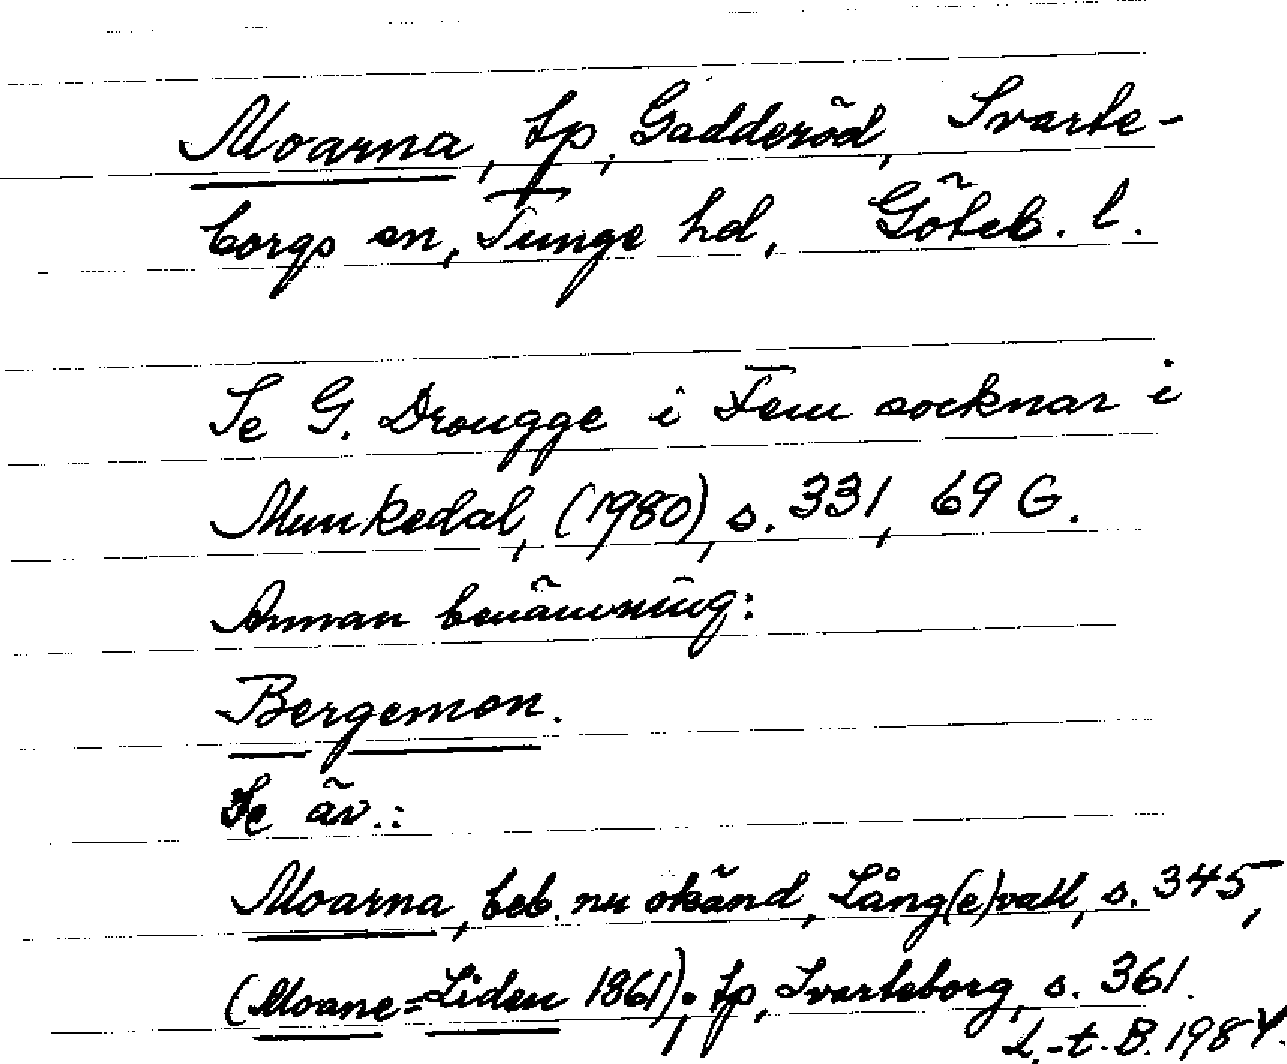 Moarna, tp, Gadderöd, Svarte-
borgs sn, Tunge hd, Göteb. l.
Se G. Drougge i Fem socknar i
Munkedal, (1980), s. 331, 69 G.
Annan benämning:
Bergemon.
Se äv.:
Moarna, beb. nu okänd, Lång(e)vall, s. 345,
(Moane=Liden 1861); tp, Svarteborg, s. 361.
L.-t. B. 1984.